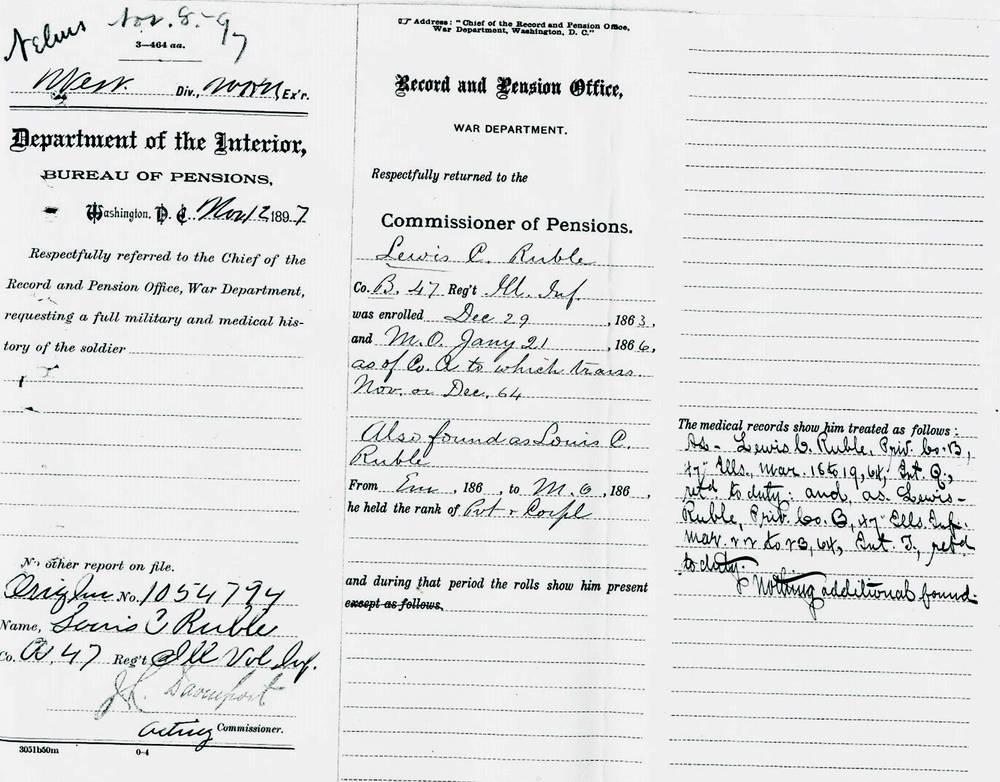 Nelms Nov. 8-97
3—464 aa.
West. Div., Ex'r.
Department of the Interior,
BUREAU OF PENSIONS,
Washington, D. C. Nov 12 1897
Respectfully referred to the Chief of the
Record and Pension Office, War Department,
requesting a full military and medical his-
tory of the soldier
No other report on file.
No. 1054794
Name, Louis C Ruble
Co. 47 Reg't Ill Vol Inf.
Davenport
Acting Commissioner.
3051b50m 0-4
☞ Address: "Chief of the Record and Pension Office,
War Department, Washington, D. C."
Record and Pension Office,
WAR DEPARTMENT.
Respectfully returned to the
Commissioner of Pensions.
Lewis C. Ruble
Co. B. 47 Reg't Ill. Inf.
was enrolled Dec 29, 1863,
and M.O. Jany 21, 1866,
as of Co. A to which trans
Nov. or Dec. 64
Also found as Louis C.
Ruble
From Em, 186 , to M. O, 186 ,
he held the rank of Pvt & Corpl
and during that period the rolls show him present
except as follows,
The medical records show him treated as follows:
As - Lewis C. Ruble, Priv. Co. B,
47 Ills., Mar. 16 to 19, 64, Int. Q.,
ret'd to duty: and, as Lewis
Ruble, Priv. Co. B, 47 Ills Inf.
Mar. 22 to 23, 64, Int. T., ret'd
to duty.
Nothing additional found.